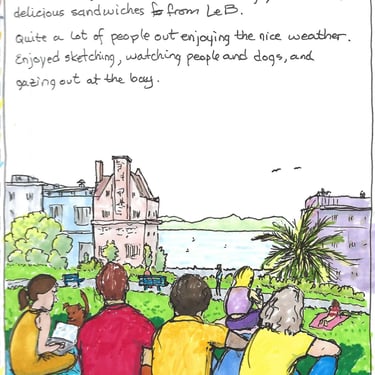 delicious sandwiches from Le B.
Quite a lot of people out enjoying the nice weather.
Enjoyed sketching, watching people and dogs, and
gazing out at the bay.